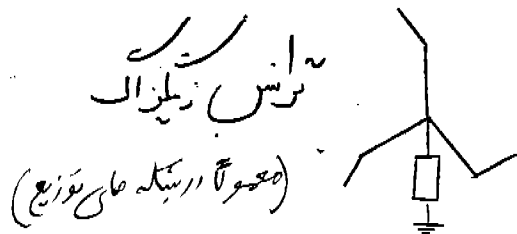 ترانس زیگزاگ
(معمولاً در شبکه های توزیع)